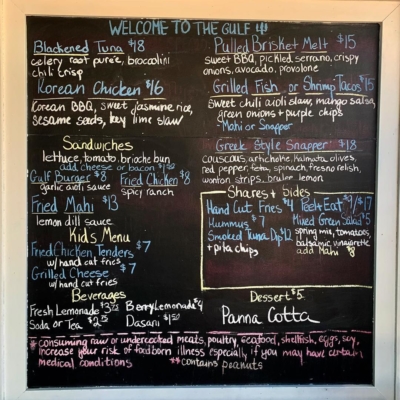 WELCOME TO THE GULF
Blackened Tuna $18
celery root pureé, broccolini
chili crisp
Korean Chicken $16
Korean BBQ, sweet jasmine rice,
sesame seeds, key lime slaw
Sandwiches
lettuce, tomato, brioche bun
add cheese or bacon $1.00
Gulf Burger $8
garlic aioli sauce
Fried Chicken $8
spicy ranch
Fried Mahi $13
lemon dill sauce
Kids Menu
Fried Chicken Tenders $7
w/ hand cut fries
Grilled Cheese $7
w/ hand cut fries
Beverages
Fresh Lemonade $3.75
Berry Lemonade $4
Soda or Tea $2.75
Dasani $1.50
Pulled Brisket Melt $15
sweet BBQ, pickled serrano, crispy
onions, avocado, provolone
Grilled Fish or Shrimp Tacos $15
sweet chili aioli slaw, mango salsa,
green onions + purple chips
-Mahi or Snapper
Greek Style Snapper $18
couscous, artichoke, Kalmata olives,
red pepper, feta, spinach, fresno relish,
wonton strips, broiled lemon
Shares + Sides
Hand Cut Fries $4
Hummus $7
Smoked Tuna Dip $12
+ pita chips
Peel + Eat $9/$17
Mixed Green Salad $5
spring mix, tomatoes,
balsamic vinaigrette
add Mahi $8
Dessert $5
Panna Cotta
*consuming raw or undercooked meats, poultry, seafood, shellfish, eggs, soy,
increase your risk of foodborn illness especially if you may have certain
medical conditions **contains peanuts